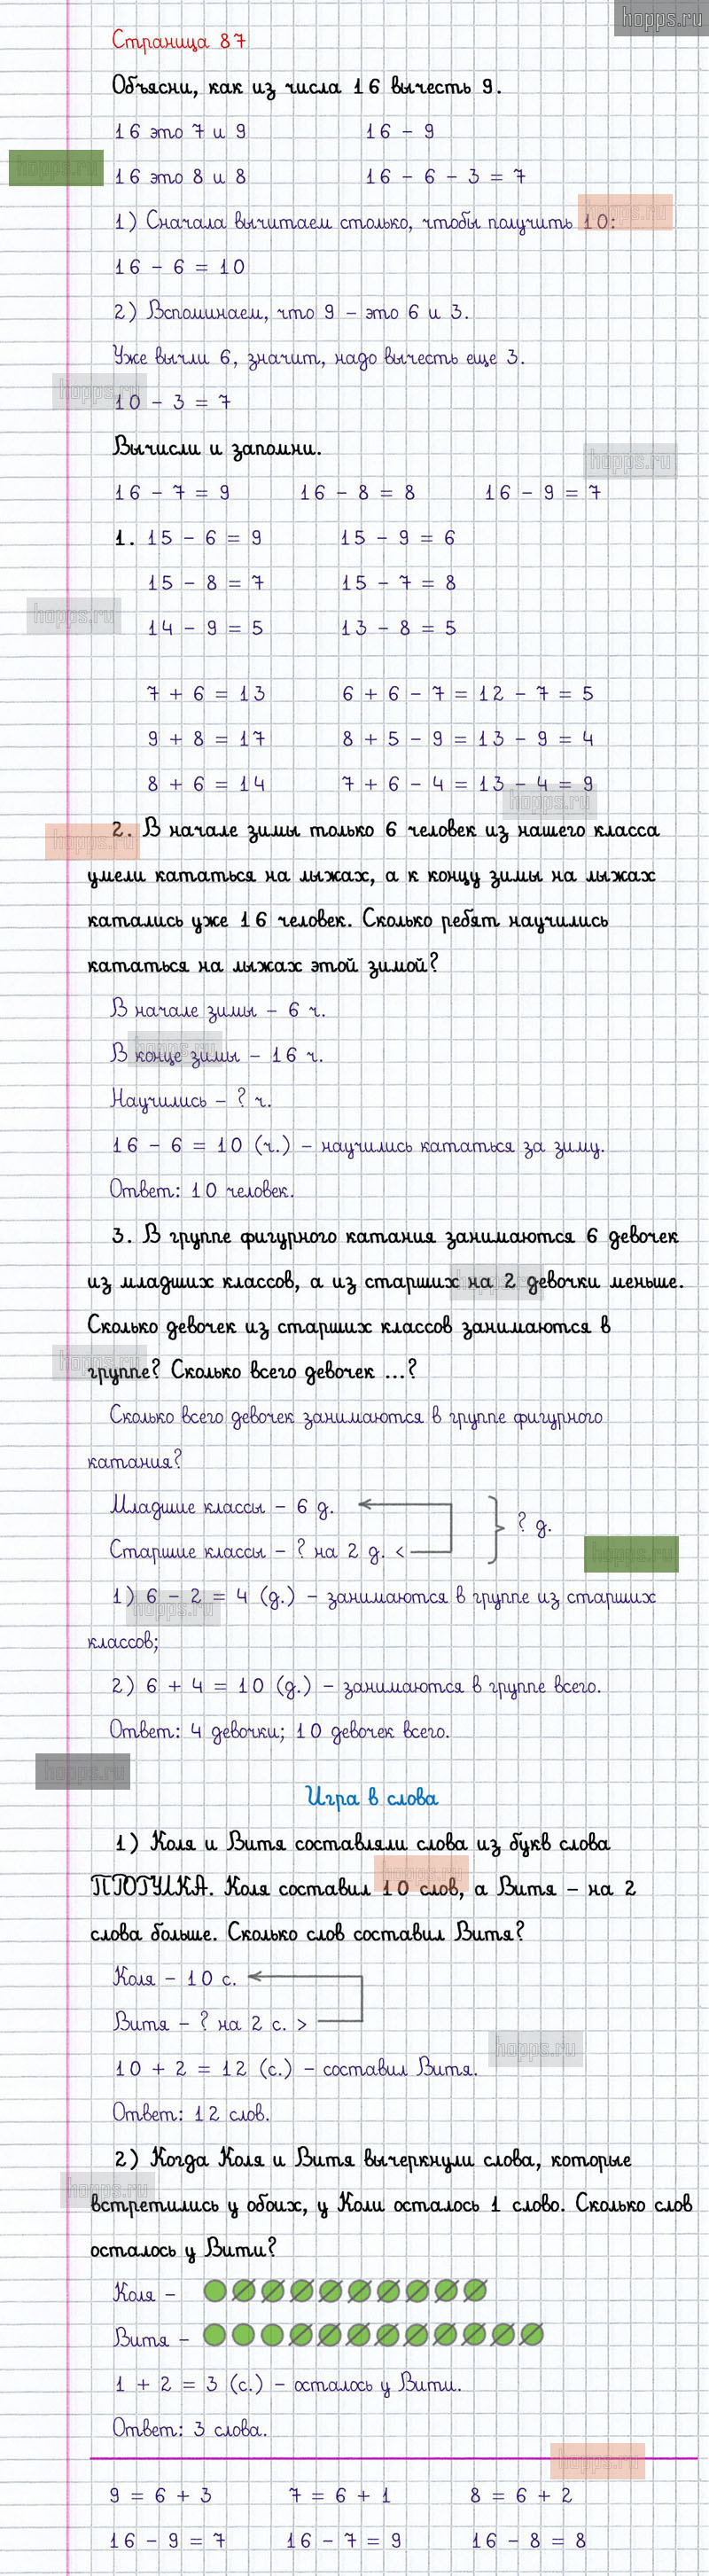 hopps.ru
Страница 87
Объясни, как из числа 16 вычесть 9.
16 это 7 и 9 16 - 9
hopps.ru
16 это 8 и 8 16 - 6 - 3 = 7
hopps.ru
1) Сначала вычитаем столько, чтобы получить 10:
16 - 6 = 10
2) Вспоминаем, что 9 - это 6 и 3.
Уже вычли 6, значит, надо вычесть еще 3.
hopps.ru
10 - 3 = 7
Вычисли и запомни.
hopps.ru
16 - 7 = 9 16 - 8 = 8 16 - 9 = 7
1. 15 - 6 = 9 15 - 9 = 6
15 - 8 = 7 15 - 7 = 8
hopps.ru
14 - 9 = 5 13 - 8 = 5
7 + 6 = 13 6 + 6 - 7 = 12 - 7 = 5
9 + 8 = 17 8 + 5 - 9 = 13 - 9 = 4
8 + 6 = 14 7 + 6 - 4 = 13 - 4 = 9
hopps.ru
2. В начале зимы только 6 человек из нашего класса
hopps.ru
умели кататься на лыжах, а к концу зимы на лыжах
катались уже 16 человек. Сколько ребят научились
кататься на лыжах этой зимой?
В начале зимы - 6 ч.
В конце зимы - 16 ч.
hopps.ru
Научились - ? ч.
16 - 6 = 10 (ч.) - научились кататься за зиму.
Ответ: 10 человек.
3. В группе фигурного катания занимаются 6 девочек
из младших классов, а из старших на 2 девочки меньше.
hopps.ru
Сколько девочек из старших классов занимаются в
hopps.ru
группе? Сколько всего девочек ...?
Сколько всего девочек занимаются в группе фигурного
катания?
Младшие классы - 6 д.
? д.
Старшие классы - ? на 2 д. <
hopps.ru
1) 6 - 2 = 4 (д.) - занимаются в группе из старших
hopps.ru
классов;
2) 6 + 4 = 10 (д.) - занимаются в группе всего.
Ответ: 4 девочки; 10 девочек всего.
hopps.ru
Игра в слова
1) Коля и Витя составляли слова из букв слова
hopps.ru
ПРОГУЛКА. Коля составил 10 слов, а Витя - на 2
слова больше. Сколько слов составил Витя?
Коля - 10 с.
Витя - ? на 2 с. >
hopps.ru
10 + 2 = 12 (с.) - составил Витя.
Ответ: 12 слов.
2) Когда Коля и Витя вычеркнули слова, которые
hopps.ru
встретились у обоих, у Коли осталось 1 слово. Сколько слов
осталось у Вити?
Коля -
Витя -
1 + 2 = 3 (с.) - осталось у Вити.
Ответ: 3 слова.
hopps.ru
9 = 6 + 3 7 = 6 + 1 8 = 6 + 2
16 - 9 = 7 16 - 7 = 9 16 - 8 = 8